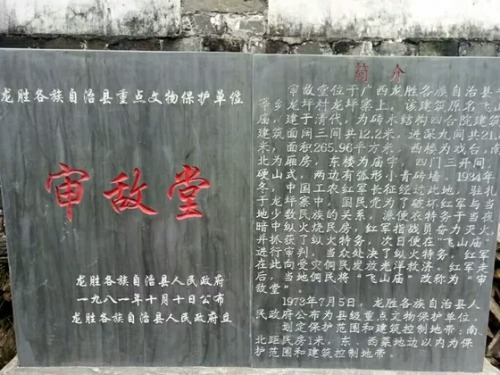 龙胜各族自治县重点文物保护单位
审敌堂
龙胜各族自治县人民政府
一九八一年十月十日公布
龙胜各族自治县人民政府立
简介
审敌堂位于广西龙胜各族自治县
等乡龙坪村龙坪寨上，该建筑原名飞
庙，建于清代，为砖木结构四合院建筑
建筑面阔三间共12.2米，进深九间共21
米，面积265.96平方米。西楼为戏台，南
北为厢房，东楼为庙宇，四门三开间，
硬山式，两边有弧形小青砖墙。1934年
冬，中国工农红军长征经过此地，驻扎
于龙坪寨中，国民党为了破坏红军与当
地少数民族的关系，派便衣特务于当夜
暗中纵火烧民房，红军指战员奋力灭火，
并抓获了纵火特务，次日便在“飞山庙”
进行审判，当众处决了纵火特务。红军
在此向受灾侗民发放光洋救济。红军走
后，当地侗民将“飞山庙”改称为“审
敌堂”。
1973年7月5日，龙胜各族自治县人
民政府公布为县级重点文物保护单位。
划定保护范围和建筑控制地带：南、
北距民房1米，东、西墓地边以内为保
护范围和建筑控制地带。